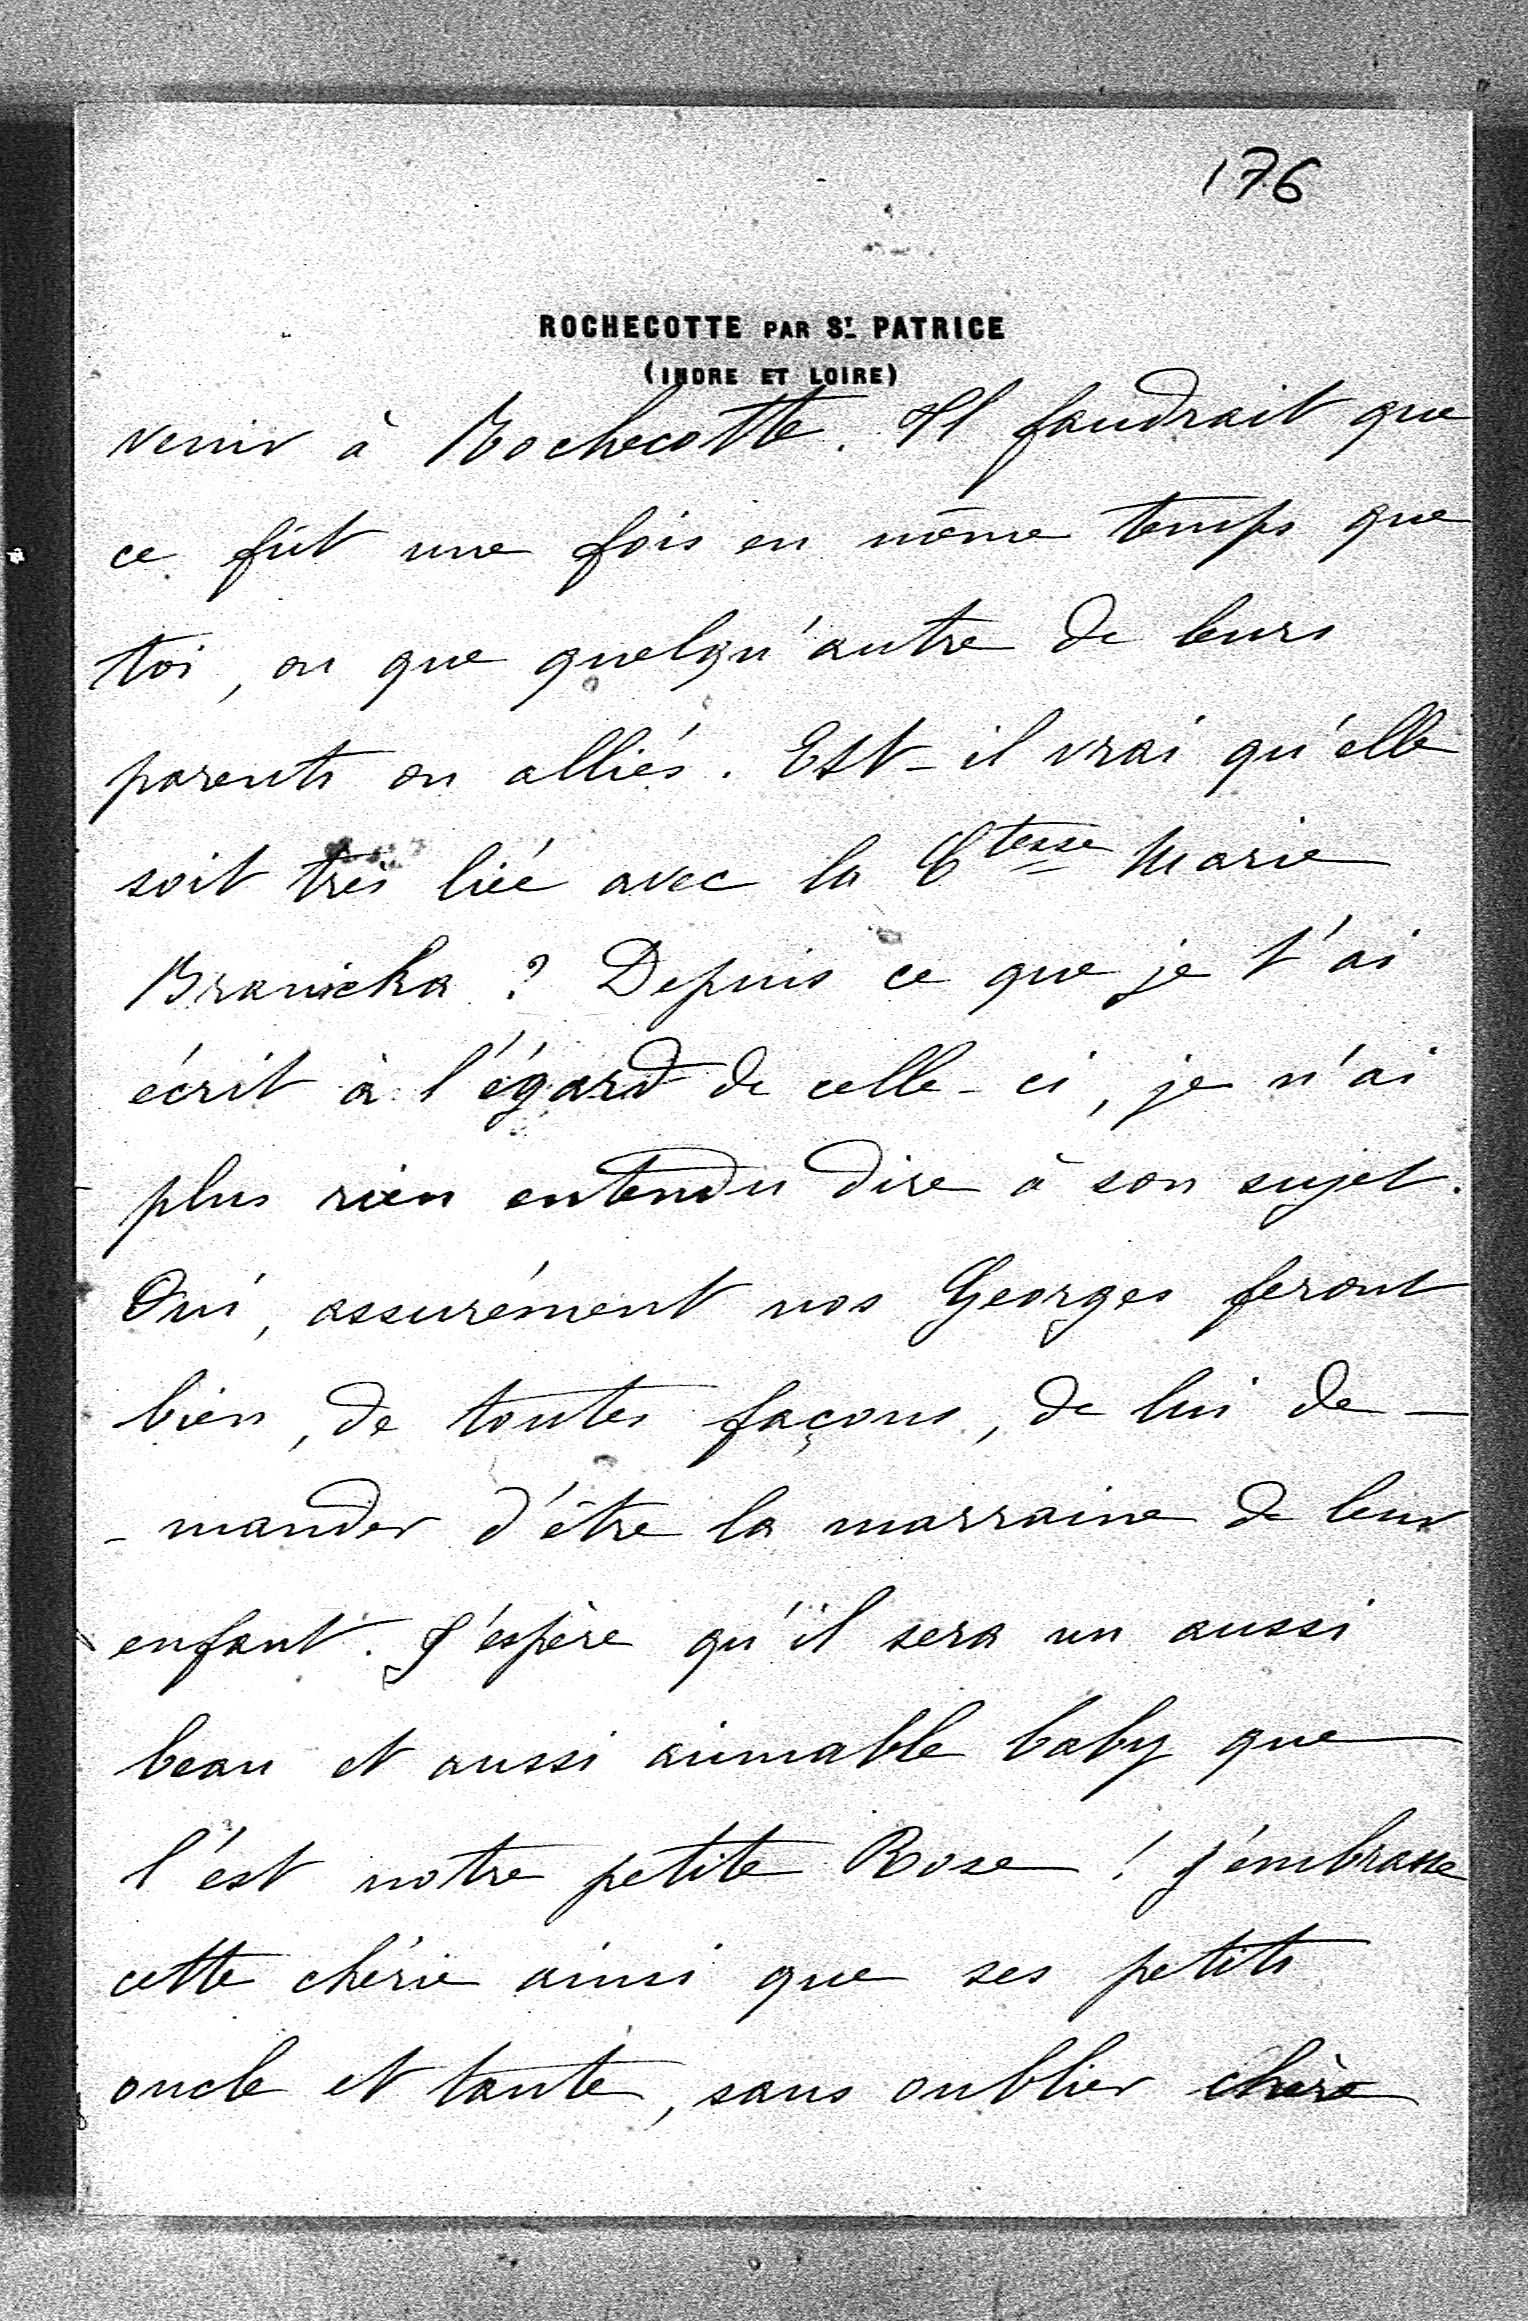 176
ROCHECOTTE PAR ST PATRICE
(INDRE ET LOIRE)
venir à Rochecotte. Il faudrait que
ce fût une fois en même temps que
toi, ou que quelqu'autre de leurs
parents ou alliés. Est-il vrai qu'elle
soit très liée avec la Ctesse Marie
Branicka ? Depuis ce que je t'ai
écrit à l'égard de celle-ci, je n'ai
plus rien entendu dire à son sujet.
Oui, assurément nos Georges feront
bien, de toutes façons, de lui de-
-mander d'être la marraine de leur
enfant. J'espère qu'il sera un aussi
beau et aussi aimable baby que
l'est notre petite Rose ! J'embrasse
cette chérie ainsi que ses petits
oncle et tante, sans oublier chère